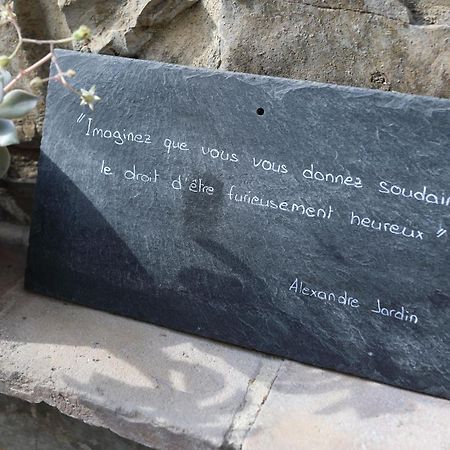 "Imaginez que vous vous donnez soudain
le droit d'être furieusement heureux"
Alexandre Jardin